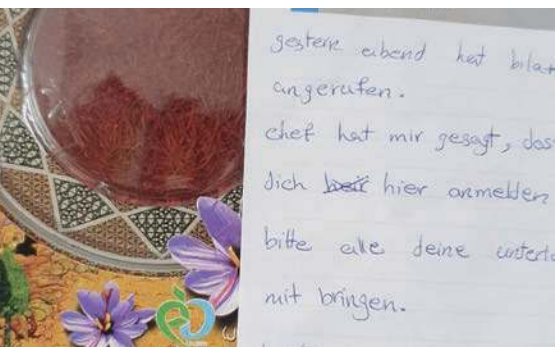 gestern abend hat bila
angerufen.
chef hat mir gesagt, das
dich hier anmelden
bitte alle deine unterl
mit bringen.